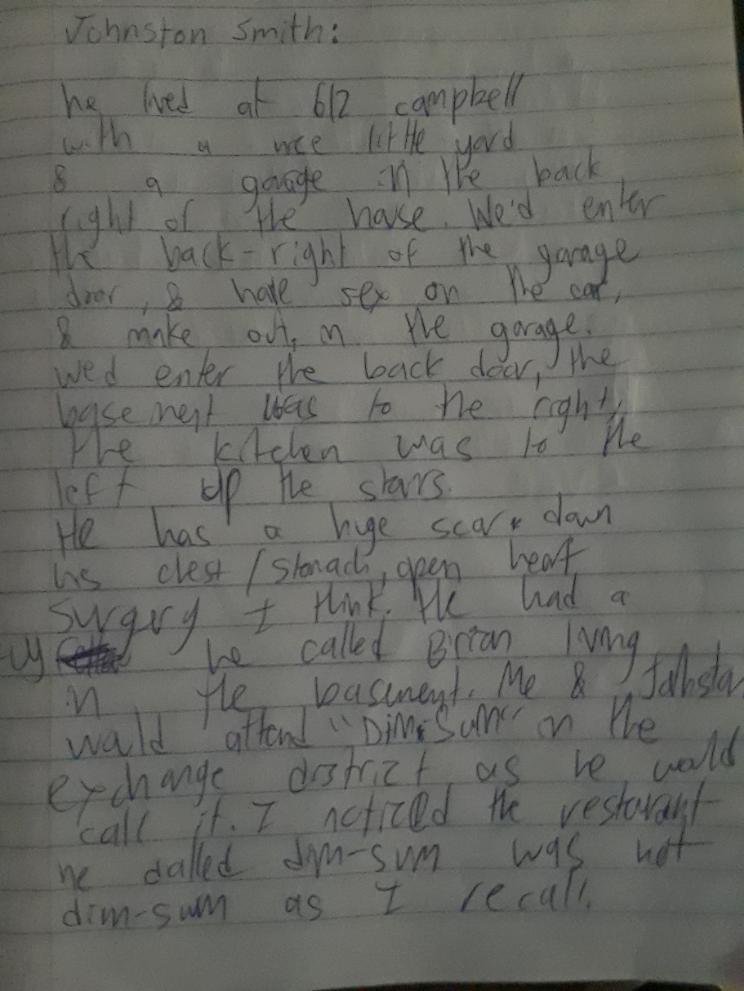 Johnston Smith:
he lived at 612 campbell
with a nice little yard
& a garage in the back
right of the house. We'd enter
the back-right of the garage
door, & have sex on the car,
& make out, in the garage.
We'd enter the back door, the
basement was to the right,
the kitchen was to the
left up the stairs.
He has a huge scar down
his chest/stomach, open heart
surgery I think. He had a
he called Brian living
in the basement. Me & Johnston
would attend "DimSum" in the
exchange district as he would
call it. I noticed the restaurant
he called dim-sum was not
dim-sum as I recall.